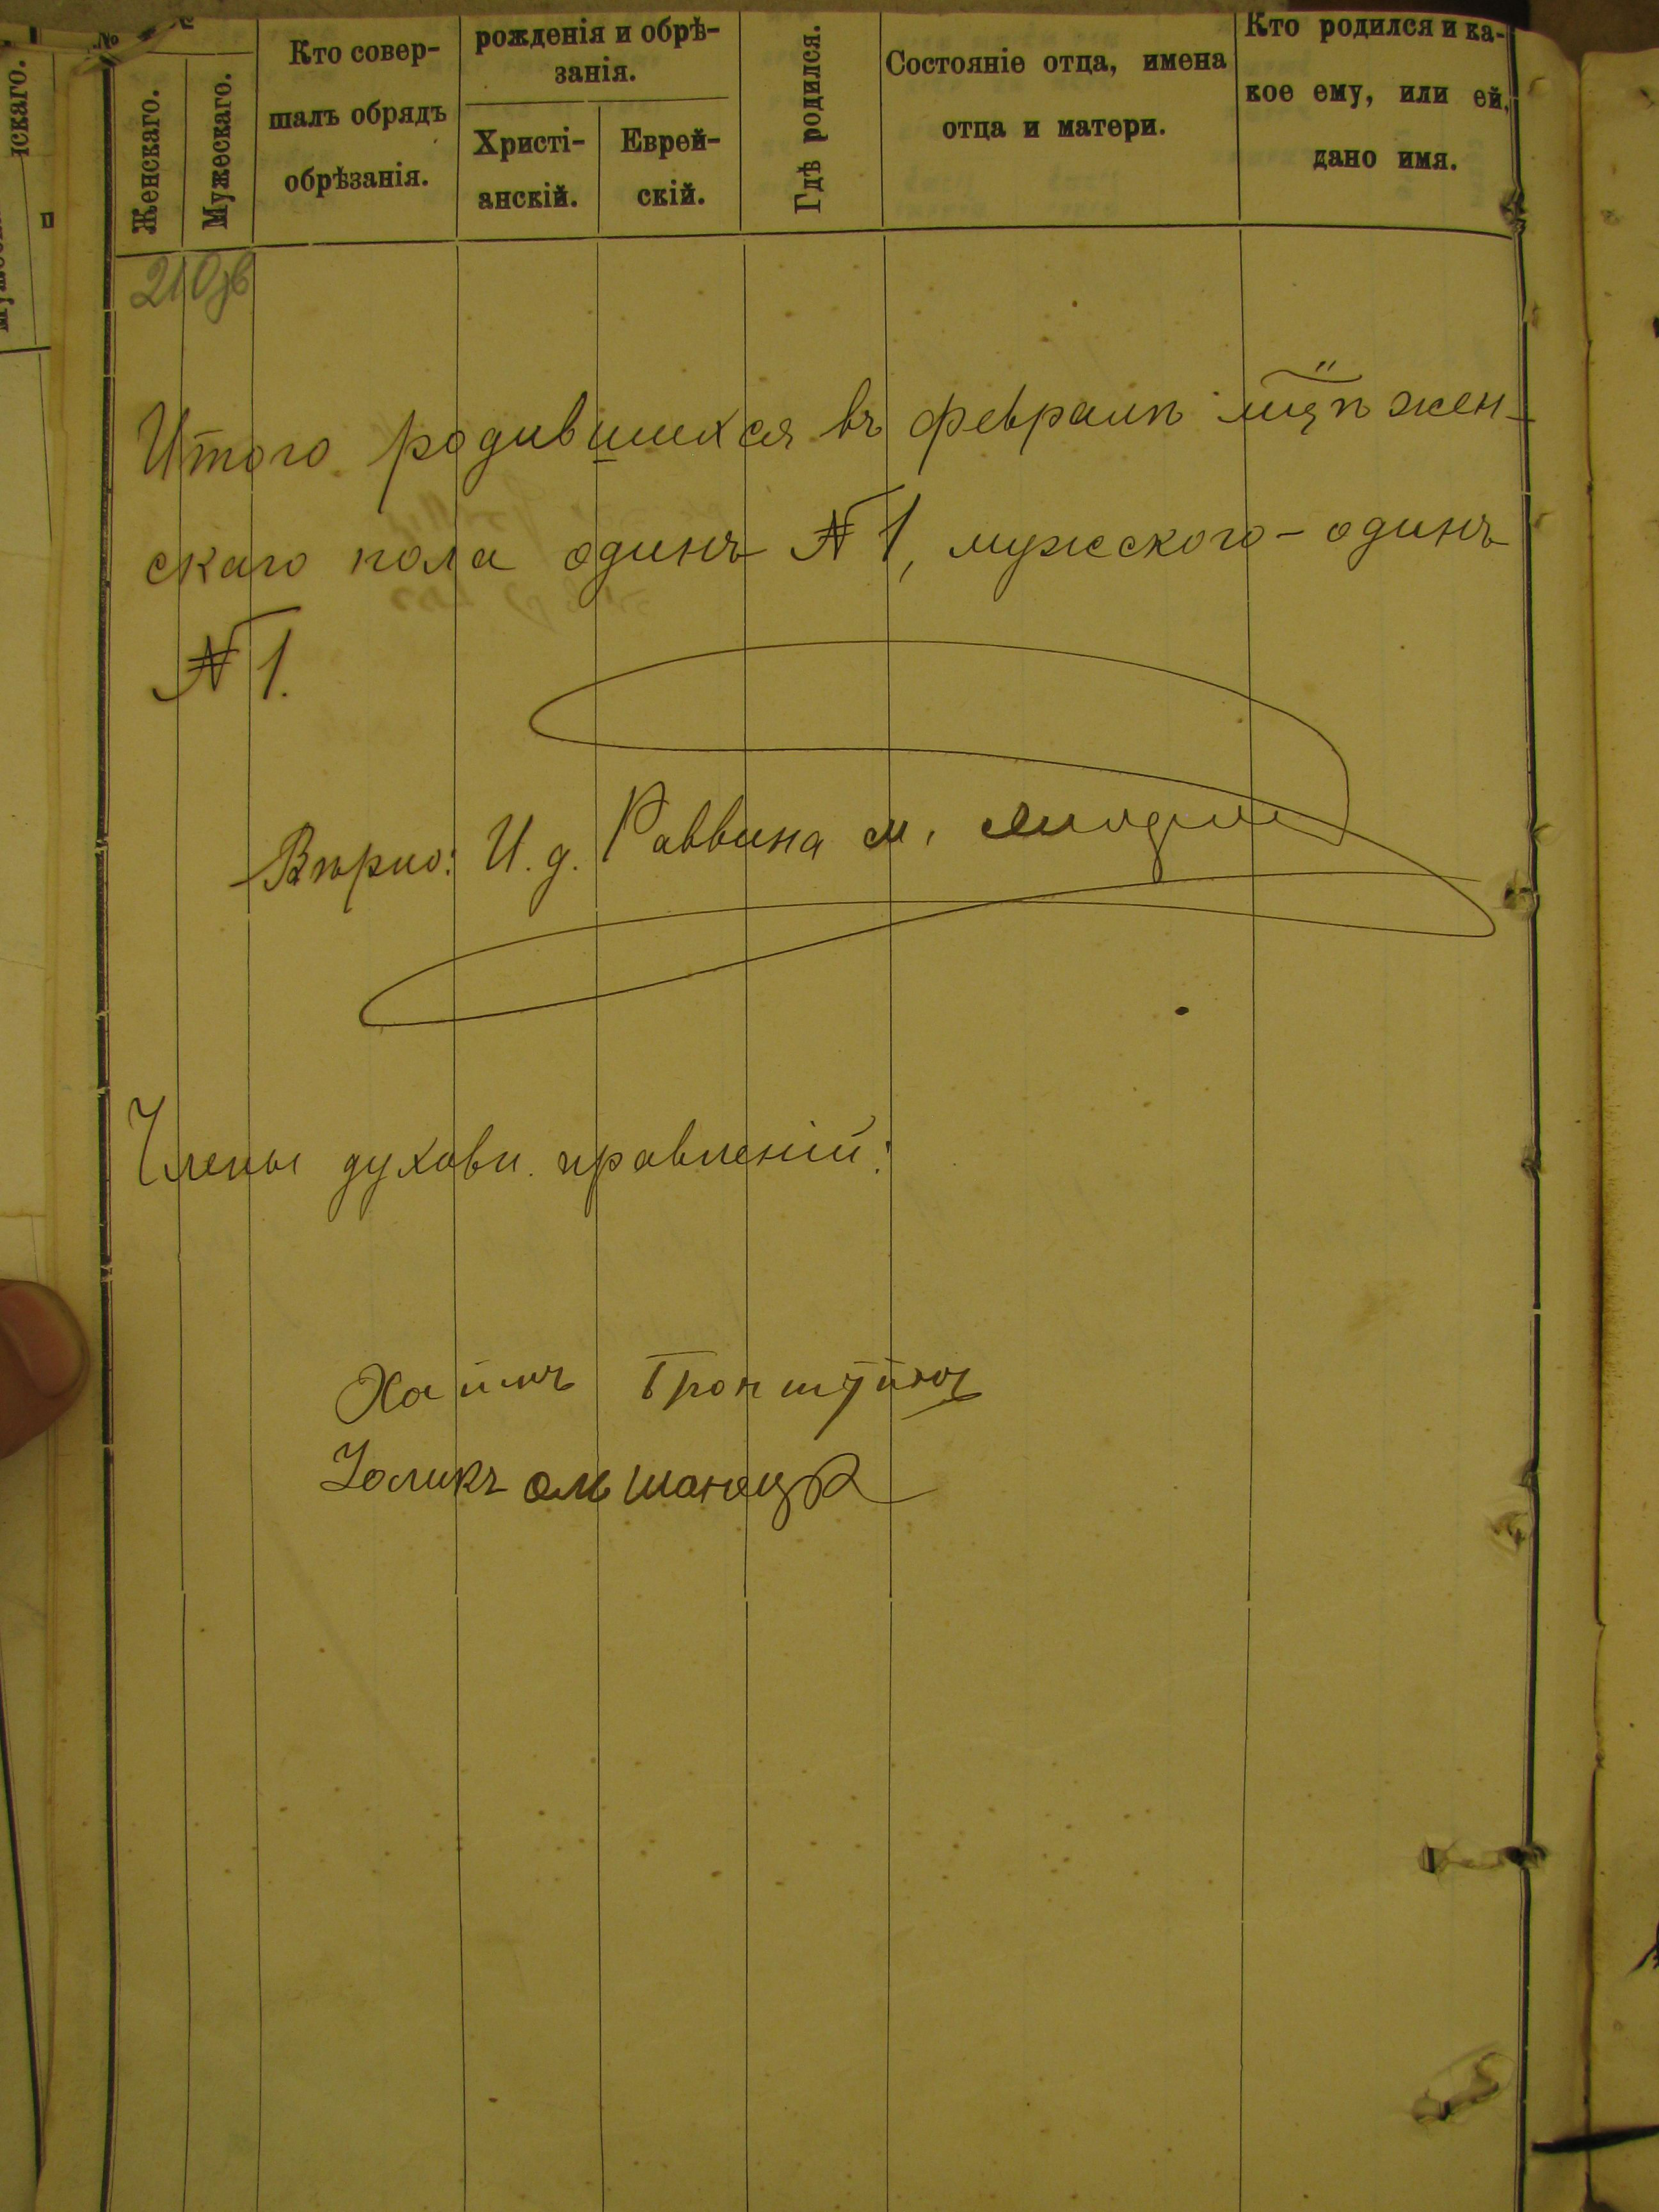 №
Женскаго.
Мужескаго.
Кто совер-
шалъ обрядъ
обрѣзанія.
рожденія и обрѣ-
занія.
Христі-
анскій.
Еврей-
скій.
Гдѣ родился.
Состояніе отца, имена
отца и матери.
Кто родился и ка-
кое ему, или ей,
дано имя.
210
Итого родившихся въ февралѣ м҃цѣ жен-
скаго пола одинъ № 1, мужского - одинъ
№ 1.
Вѣрно: И. д. Раввина М.
Члены духовн. правленій:
Хаимъ Бронштейнъ
Зеликъ Ольшанецкій